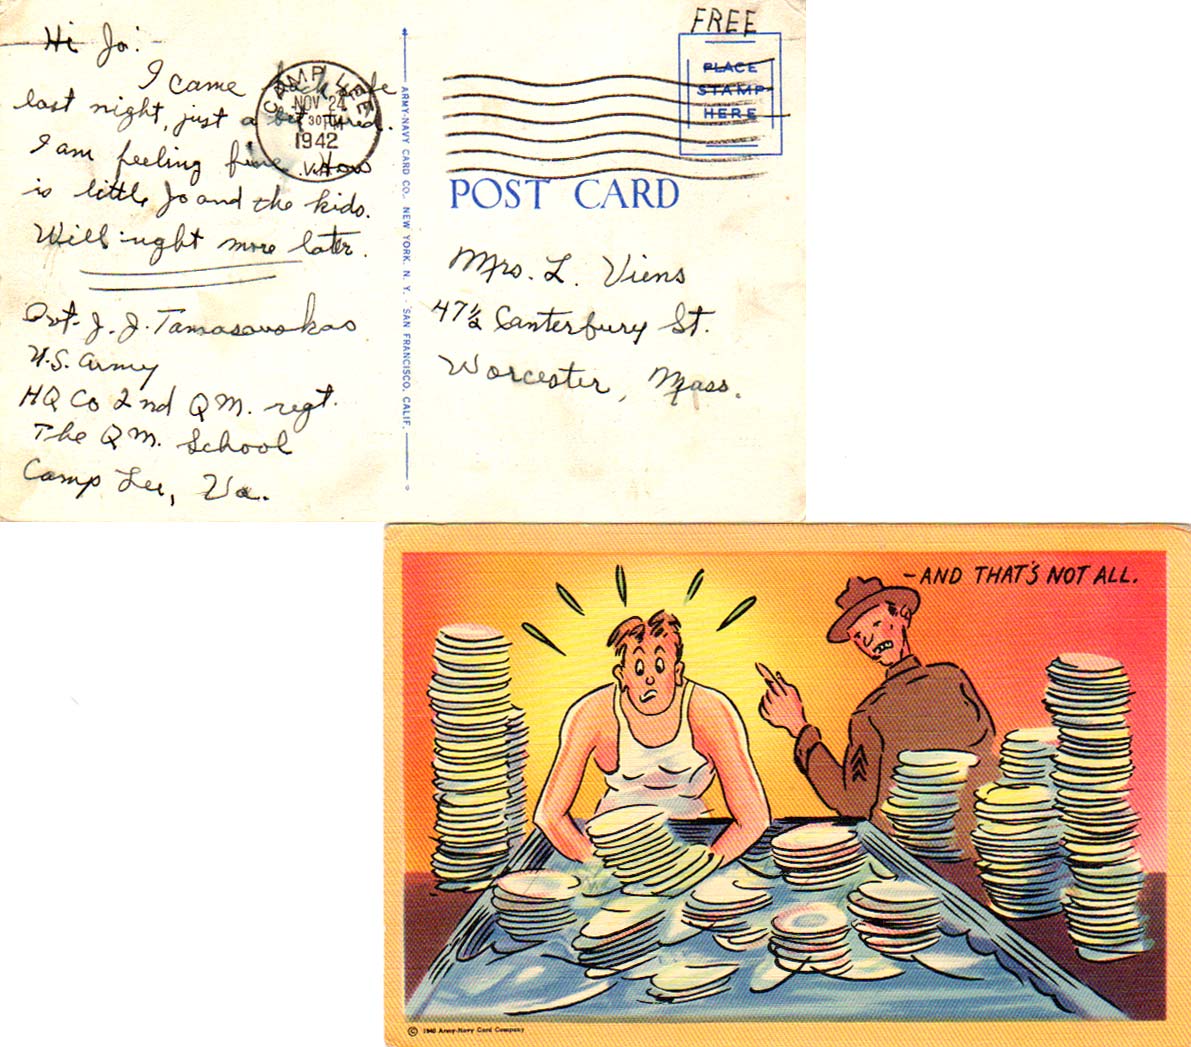 Hi Jo:
I came back safe
last night, just a bit tired.
I am feeling fine. How
is little Jo and the kids.
Will :ught more later.
Pvt. J. J. Tamasavakas
U.S. Army
HQ Co 2nd QM. regt.
The QM. School
Camp Lee, Va.
CAMP LEE
NOV 24
30 PM
1942
VA.
ARMY-NAVY CARD CO. NEW YORK, N. Y. - SAN FRANCISCO, CALIF.
FREE
PLACE
STAMP
HERE
POST CARD
Mrs. L. Viens
47½ Canterbury St.
Worcester, Mass.
—AND THAT'S NOT ALL.
© 1940 Army-Navy Card Company